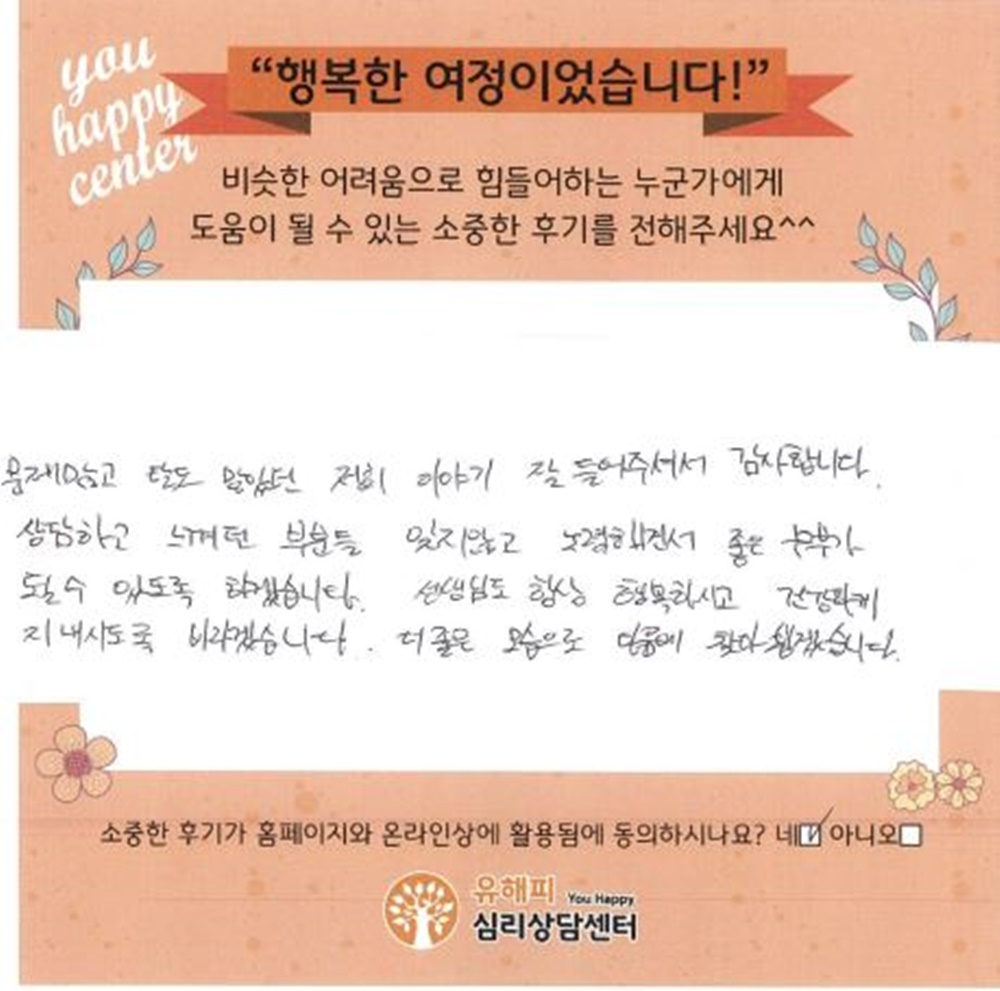 you
happy
center
“행복한 여정이었습니다!”
비슷한 어려움으로 힘들어하는 누군가에게
도움이 될 수 있는 소중한 후기를 전해주세요^^
문제많고 탈도 많았던 저희 이야기 잘 들어주셔서 감사합니다.
상담하고 느꼈던 부분들 잊지않고 노력해견서 좋은 부부가
될수 있도록 하겠습니다. 선생님도 항상 행복하시고 건강하게
지내시도록 바라겠습니다. 더 좋은 모습으로 다음에 찾아뵙겠습니다.
소중한 후기가 홈페이지와 온라인상에 활용됨에 동의하시나요? 네☑ 아니오☐
유해피 You Happy
심리상담센터